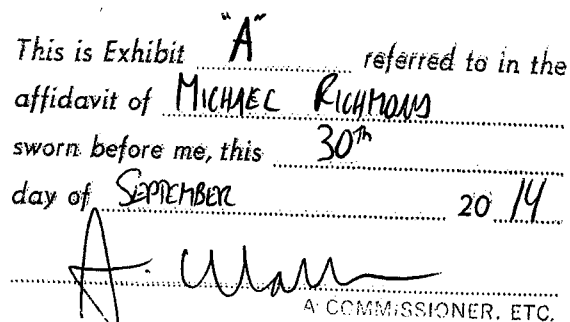 This is Exhibit "A" referred to in the
affidavit of MICHAEL RICHMOND
sworn before me, this 30th
day of SEPTEMBER 20 14
A COMMISSIONER, ETC.